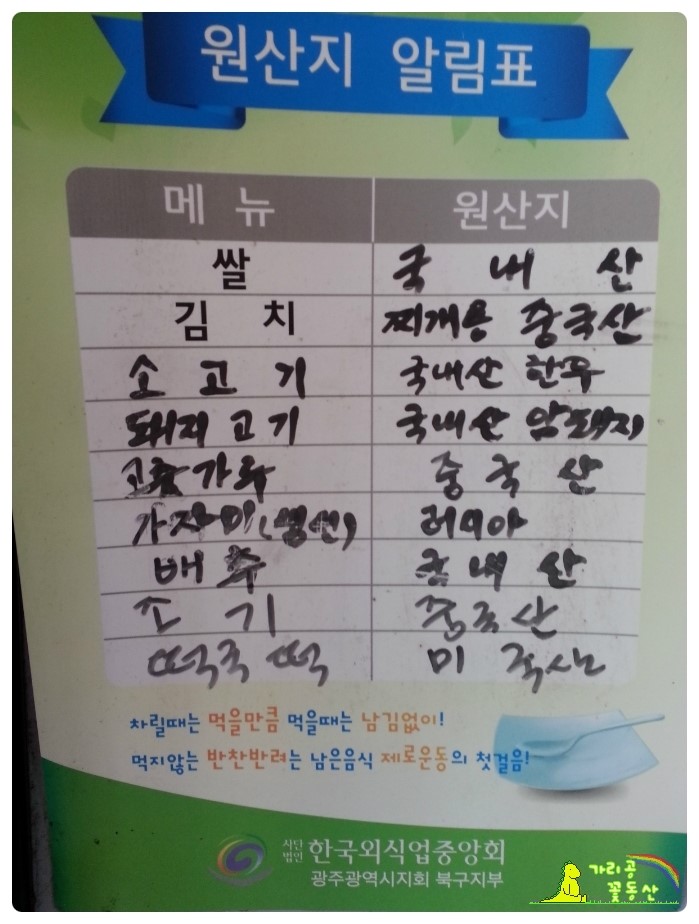 원산지 알림표
메 뉴 원산지
쌀 국 내 산
김 치 찌개용 중국산
소 고 기 국내산 한우
돼지 고기 국내산 암돼지
고춧가루 중 국 산
가자미(생선) 러시아
배 추 국 내 산
조 기 중국산
떡국 떡 미 국산
차릴때는 먹을만큼 먹을때는 남김없이!
먹지않는 반찬반려는 남은음식 제로운동의 첫걸음!
사단법인 한국외식업중앙회
광주광역시지회 북구지부
가리공
꽃동산